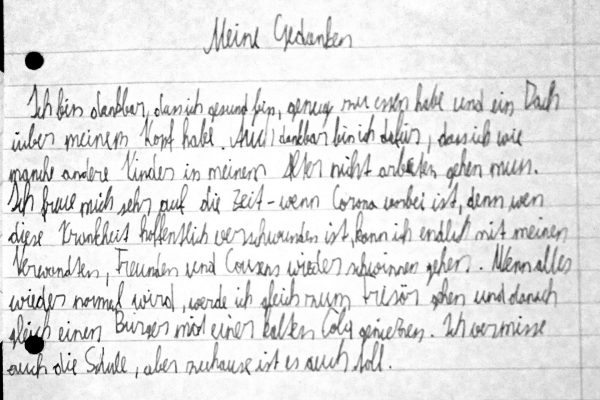 Meine Gedanken
Ich bin dankbar, dass ich gesund bin, genug zu essen habe und ein Dach
über meinem Kopf habe. Auch dankbar bin ich dafür, dass ich wie
manche andere Kinder in meinem Alter nicht arbeiten gehen muss.
Ich freue mich sehr auf die Zeit - wenn Corona vorbei ist, denn wen
diese Krankheit hoffentlich verschwunden ist, kann ich endlich mit meinen
Verwandten, Freunden und Cousens wieder schwimmen gehen. Wenn alles
wieder normal wird, werde ich gleich zum Fresör gehen und danach
gleich einen Burger mit einer kalten Cola genießen. Ich vermisse
auch die Schule, aber zuhause ist es auch toll.